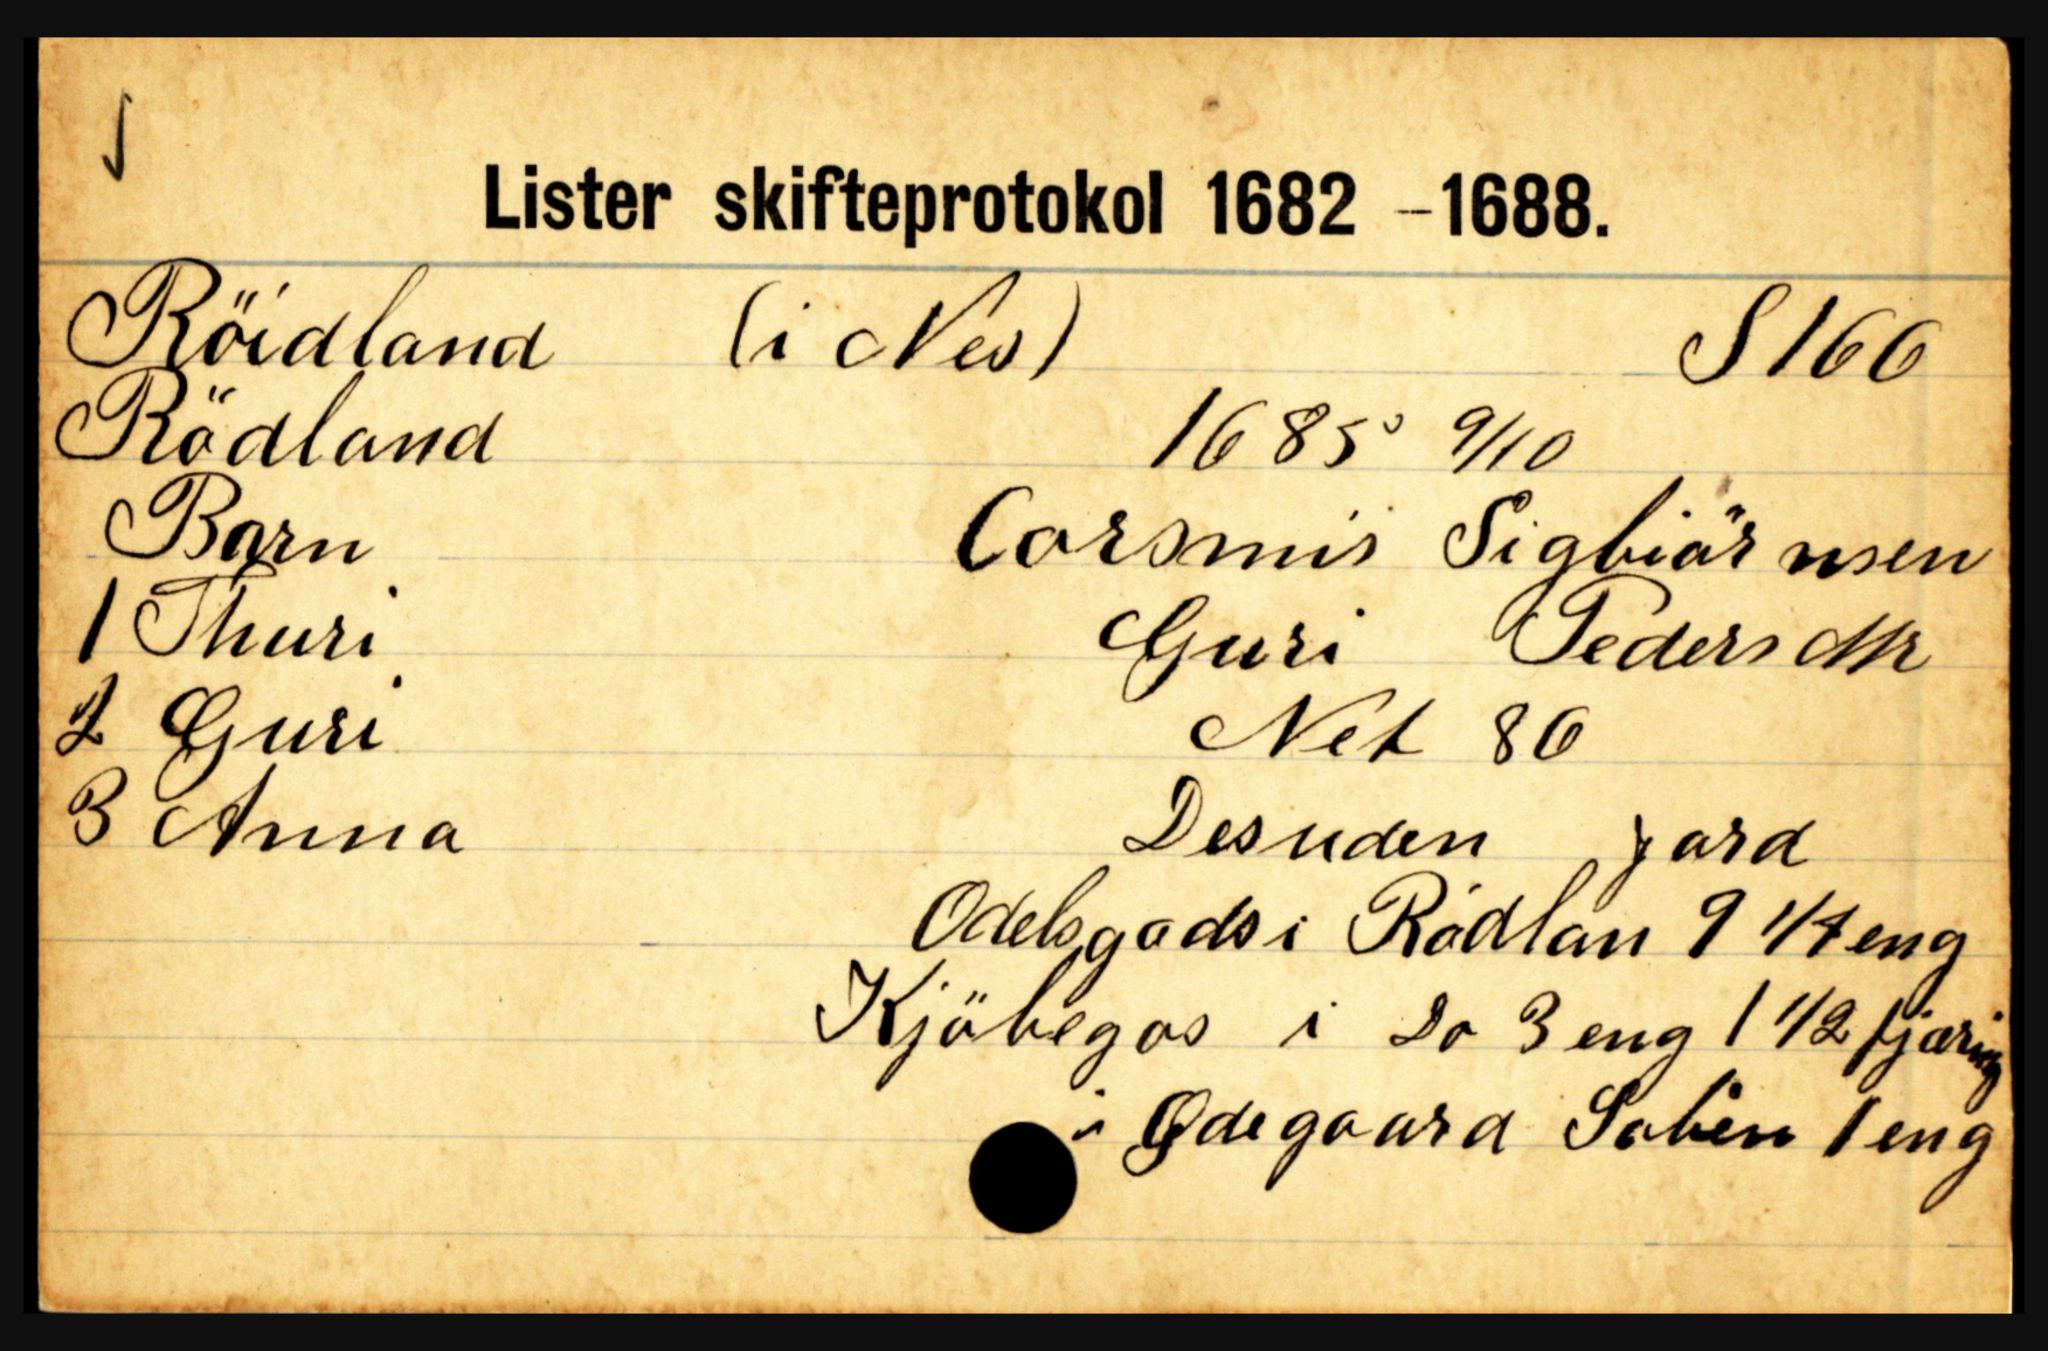 Lister skifteprotokol 1682 - 1688.
Röidland (i Nes) S 166
Rödland 1685 9/10
Barn Corsmis Sigbiörnsen
1 Thuri Guri Peders dtr
2 Guri Net 86
3 Anna Desuden jord
Odelsgods i Rödlan 9 1/4 eng
Kjöbegos i Do 3 eng 1 1/2 fjæring
i Ødegaard Soben 1 eng